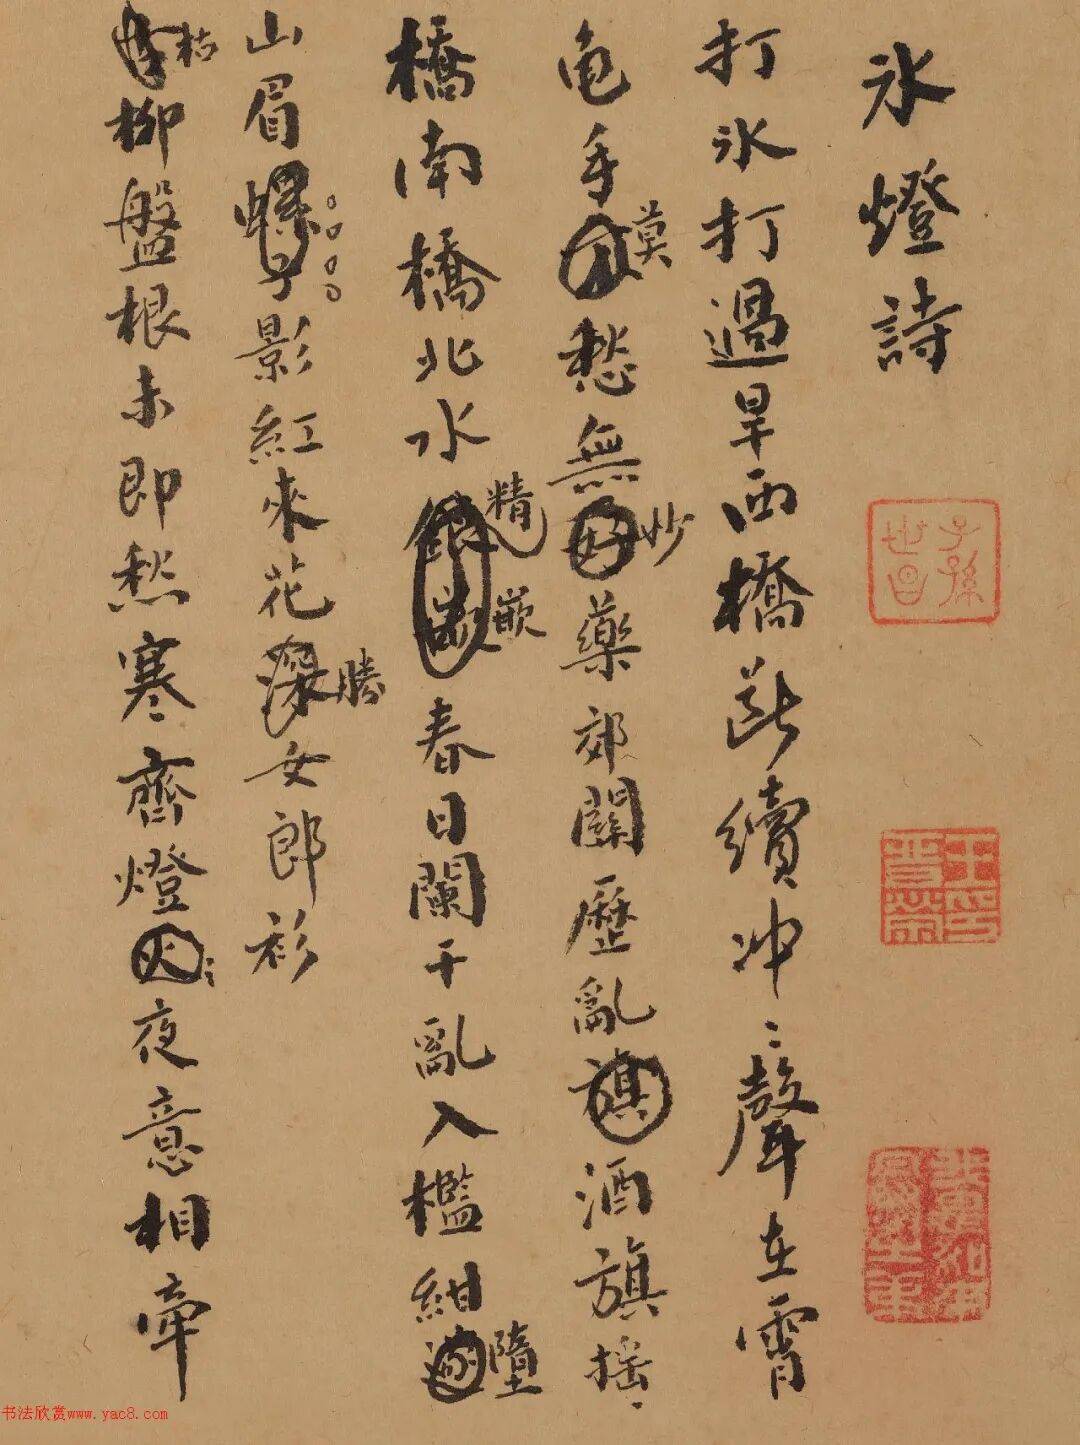 冰燈詩
打冰打過旱西橋斷續冲〻聲在霄
龟手莫愁無妙藥郊關歷亂酒旗摇〻
橋南橋北水精嵌春日闌干亂入檻紺墮
山眉螺子影紅來花勝女郎衫
枯柳盤根未即愁寒齊燈火夜意相牽
子孫世昌
书法欣赏www.yac8.com